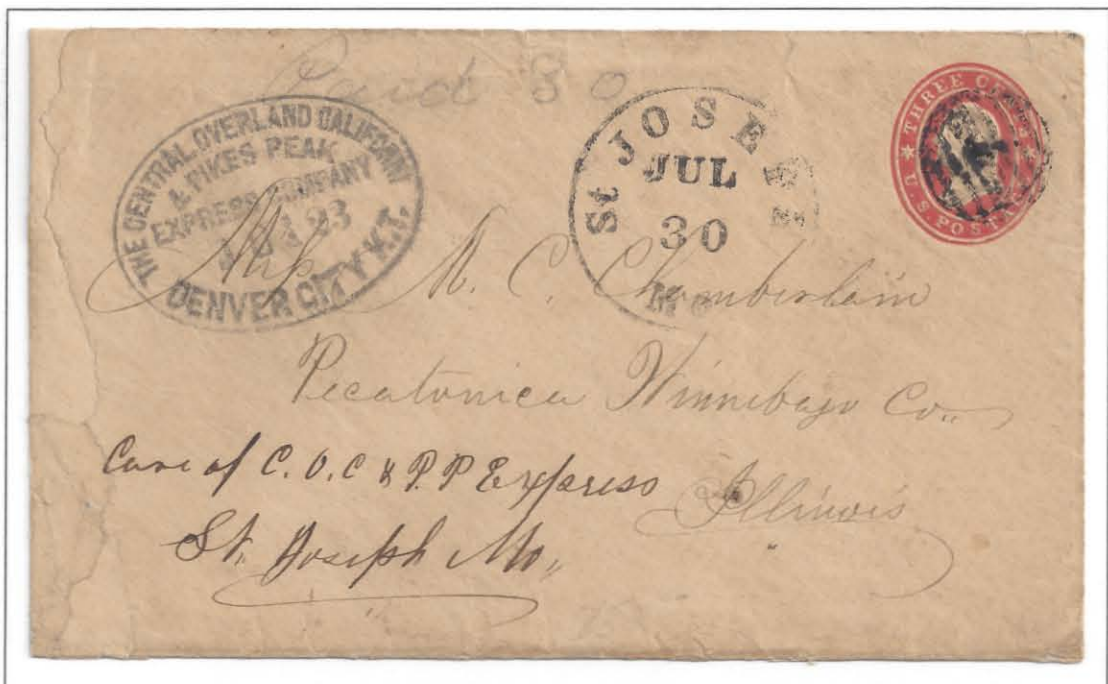 Paid
THE CENTRAL OVERLAND CALIFORNI
& PIKES PEAK
EXPRESS COMPANY
23
DENVER CITY K.T.
St JOSEPH
JUL
30
Mo
U.S. POSTAGE
THREE CENTS
M. C. Chamberlain
Pecatonica Winnebago Co.
Illinois
Care of C. O. C & P. P Express
St. Joseph Mo.